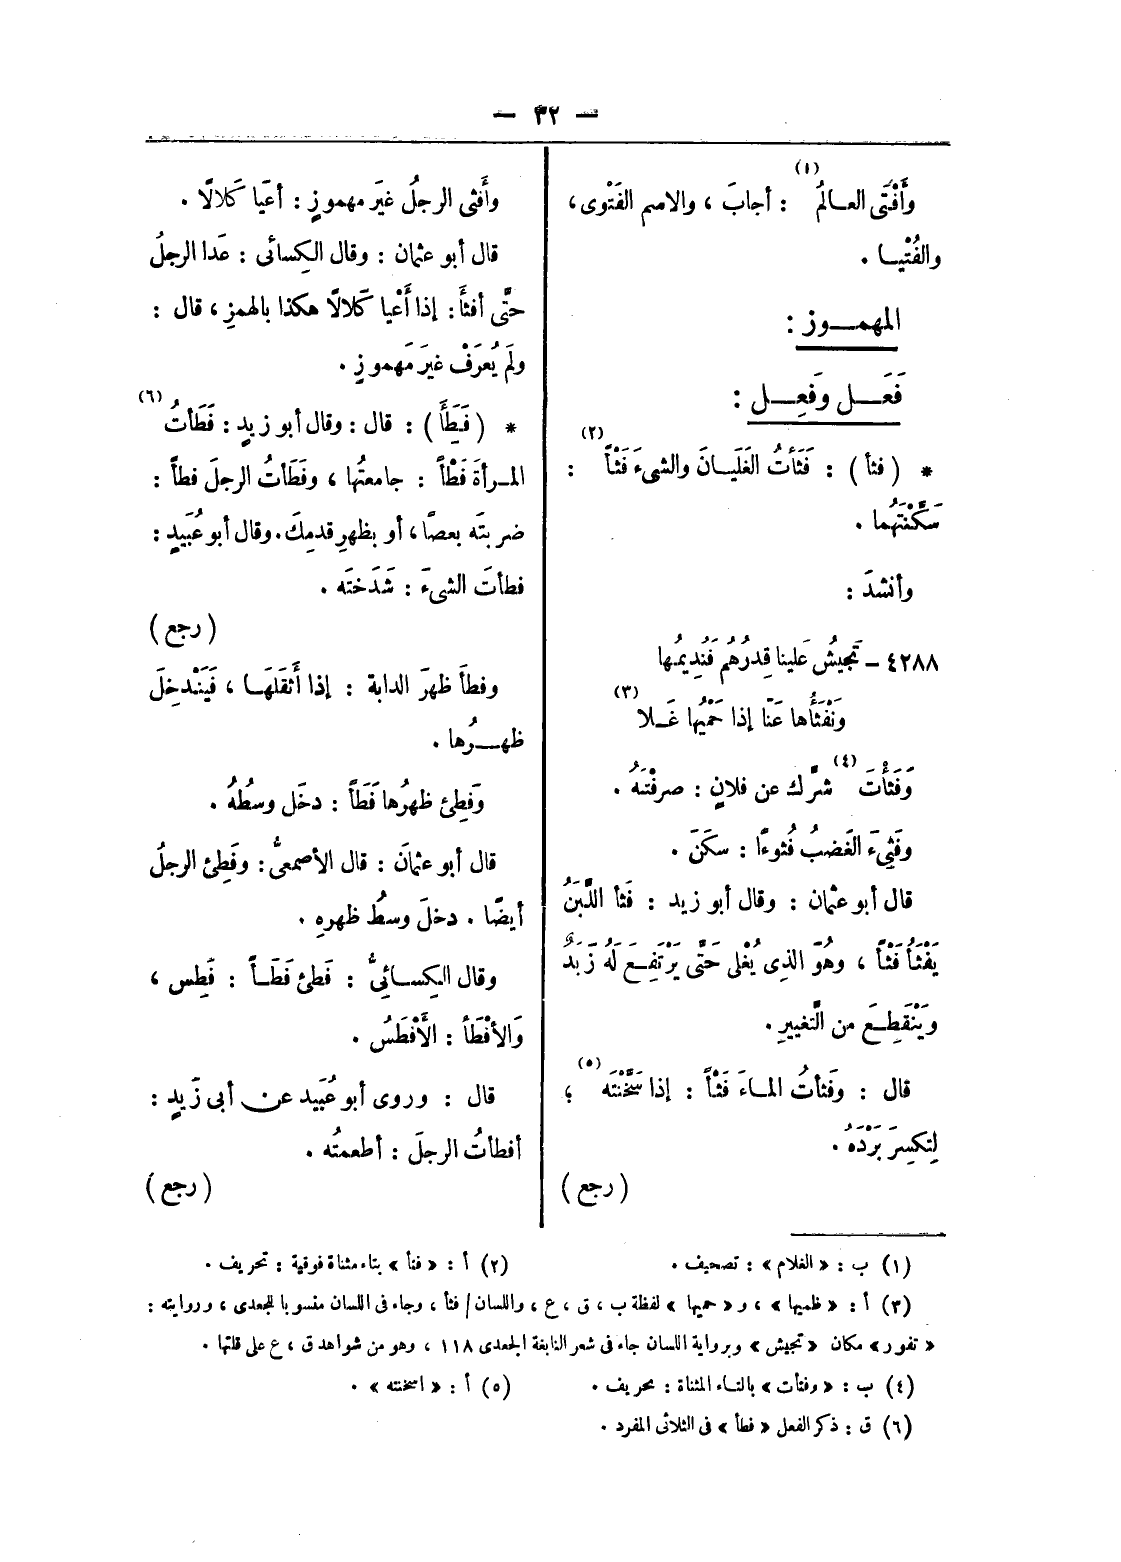 — ٣٢ —
وأَفْتَى العـالمُ (١) : أجابَ ، والاسم الفَتْوى ،
والفُتْيـا .
المهمـــوز :
فَعَـــل وفَعِـــل :
* ( فثأ ) : فَثَأتُ الغَلَيـانَ والشىءَ فَثْأً (٢) :
سَكَّنْتُهُما .
وأنشدَ :
٤٢٨٨ – تَجِيشُ عَلينا قِدرُهُم فَنُدِيمُها
وَنَفْثَأُها عَنّا إذا حَمْيُها غَـلا (٣)
وَفَثَأْتَ (٤) شرَّك عن فلانٍ : صرفْتَهُ .
وفَثِىءَ الغَضبُ فُثوءًا : سكَنَ .
قال أبو عثمان : وقال أبو زيد : فَثأ اللَّبَنُ
يَفْثَأُ فَثْأً ، وهُوَ الذِى يُغْلى حَتَّى يَرْتَفِـعَ لَهُ زَبَدٌ
ويَنْقَطِـعَ من التَّغييرِ .
قال : وفَثأتُ المـاءَ فَثْأً : إذا سَخَّنْتَه (٥) ؛
لِتكسِرَ بَرْدَهُ .
( رجع )
وأَفثى الرجلُ غيَر مهموزٍ : أعْيا كَلالًا .
قال أبو عثمان : وقال الكِسائى : عَدا الرجلُ
حتَّى أفثأَ : إذا أَعْيا كَلالًا هكذا بالهمزِ ، قال :
ولَم يُعرَفْ غيرَ مَهموزٍ .
* ( فَطَِأَ ) : قال : وقال أبو زيدٍ : فَطَأتُ (٦)
المـرأةَ فَطْأً : جامعتُها ، وفَطَأتُ الرجلَ فطأً :
ضربتَه بعصًا ، أو بظهرِ قدمِكَ . وقال أبو عُبَيدٍ :
فطأتَ الشىءَ : شَدَختَه .
( رجع )
وفطأَ ظهرَ الدابة : إذا أَثقَلَهَـا ، فَيَنْدخِلَ
ظهـــرُها .
وَفَطِئَ ظهرُها فَطَأً : دخَل وسطُهُ .
قال أبو عثمانَ : قال الأصمعىُّ : وفَطِئَ الرجلُ
أيضًا . دخلَ وسطُ ظهرهِ .
وقال الكِسـائِىُّ : فَطئَ فَطَـأً : فَطِس ،
وَالأفْطَأ : الأَفْطَسُ .
قال : وروى أبو عُبَيد عن أبى زَيدٍ :
أفطأتُ الرجلَ : أطعمتُه .
( رجع )
(١) ب : « الغلام » : تصحيف . (٢) أ : « فتأ » بتاء مثناة فوقية : تحريف .
(٣) أ : « ظميها » ، و « حميها » لفظة ب ، ق ، ع ، واللسان / فثأ ، وجاء فى اللسان منسوبا للجعدى ، وروايته :
« تفور » مكان « تجيش » وبرواية اللسان جاء فى شعر النابغة الجعدى ١١٨ ، وهو من شواهد ق ، ع على قلتها .
(٤) ب : « وفتأت » بالتـاء المثناة : تحريف . (٥) أ : « اسخنته » .
(٦) ق : ذكر الفعل « فطأ » فى الثلاثى المفرد .